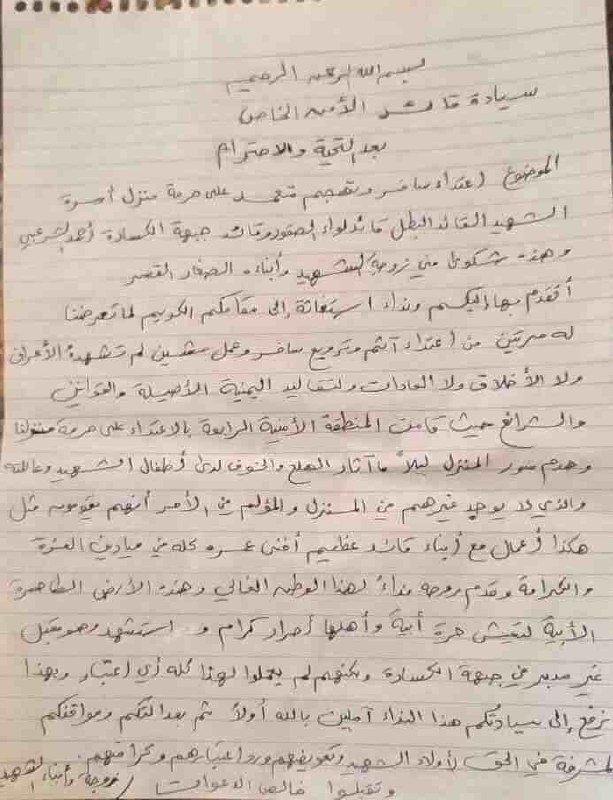 بسم الله الرحمن الرحيم
سيادة قائد الأمن الخاص
بعد التحية والاحترام
الموضوع اعتداء سافر وتهجم متعمد على حرمة منزل أسرة
الشهيد القائد البطل قائد لواء الصقور وقائد جبهة الكسارة أحمد الشرعبي
وهذه شكوى مني زوجة الشهيد وأبناءه الصغار القصر
أتقدم بها إليكم ونداء استغاثة إلى مقامكم الكريم لما تعرضنا
له مرتين من اعتداء آثم وترويع سافر وعمل مشين لم تشهده الأعراف
ولا الأخلاق ولا العادات ولتقاليد اليمنية الأصيلة والقوانين
والشرائع حيث قامت المنطقة الأمنية الرابعة بالاعتداء على حرمة منزلنا
وهدم سور المنزل ليلاً ما آثار الهلع والخوف لدى أطفال الشهيد وعائلته
والذي لا يوجد غيرهم في المنزل والمؤلم في الأمر أنهم يقومون مثل
هكذا أعمال مع أبناء قائد عظيم أفنى عمره كله في ميادين العزة
والكرامة وقدم روحه فداءً لهذا الوطن الغالي وهذه الأرض الطاهرة
الأبية لتعيش حرة أبية وأهلها أحرار كرام و استشهد وهو مقبل
غير مدبر في جبهة الكسارة ولكنهم لم يعملوا لهذا كله أي اعتبار وبهذا
نرفع إلى سيادتكم هذا النداء آملين بالله أولاً ثم بعدالتكم ومواقفكم
المشرفة في الحق لأولاد الشهيد وتعويضهم ورد اعتبارهم وكرامتهم
وتقبلوا خالص الدعوات / زوجة وأبناء الشهيد